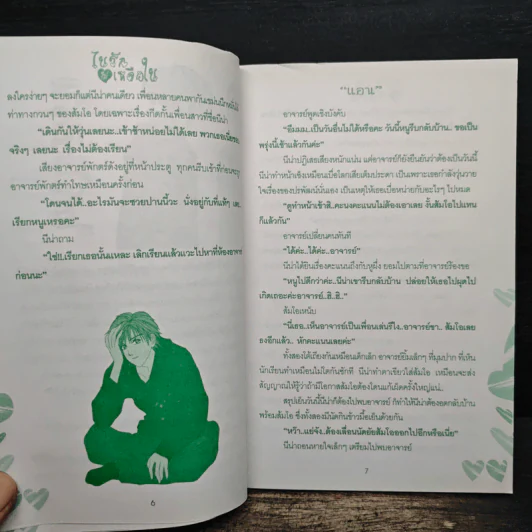 ไนรัก
เหลือใน
ลงใครง่ายๆ จะยอมก็แต่นีน่าคนเดียว เพื่อนหลายคนพากันเขม่น
ท่าทางกวนๆ ของส้มโอ โดยเฉพาะเรื่องกีดกั้นเพื่อนสาวที่ชื่อนีน่า
"เดินกันให้วุ่นเลยนะ..เข้าช้าหน่อยไม่ได้เลย พวกเธอนี่
จริงๆ เลยนะ เรื่องไม่ต้องเรียน"
เสียงอาจารย์พักตร์ดังอยู่ที่หน้าประตู ทุกคนรีบเข้าที่ก่อน
อาจารย์พักตร์ทำโทษเหมือนครั้งก่อน
"โดนจนได้..อะไรมันจะซวยปานนี้วะ นั่งอยู่กับที่แท้ๆ
เรียกหนูเหรอคะ"
นีน่าถาม
"ใช่!!.เรียกเธอนั้นแหละ เลิกเรียนแล้วแวะไปหาที่ห้องอาจารย์
ก่อนนะ"
6
"แอาเ"
อาจารย์พูดเชิงบังคับ
"อืมมม..เป็นวันอื่นไม่ได้หรือคะ วันนี้หนูรีบกลับบ้าน.. ขอเป็น
พรุ่งนี้เช้าแล้วกันค่ะ"
นีน่าปฏิเสธเสียงหนักแน่น แต่อาจารย์ก็ยังยืนยันว่าต้องเป็นวันนี้
นีน่าทำเชิงเหมือนเบื่อโลกเสียเต็มประดา เป็นเพราะเธอกำลังวุ่นวาย
ใจเรื่องของปรพัสน์นั่นเอง เป็นเหตุให้เธอเบื่อหน่ายกับอะไรๆ ไปหมด
"ดูทำหน้าเข้าสิ..คะนงคะแนนไม่ต้องเอาเลย งั้นส้มโอไปแทน
ก็แล้วกัน"
อาจารย์เปลี่ยนคนทันที
"ได้ค่ะ..ได้ค่ะ..อาจารย์"
นีน่าได้ยินเรื่องคะแนนถึงกับหูผึ่ง ยอมไปตามที่อาจารย์ร้องขอ
"หนูไปดีกว่าค่ะ..นีน่าเขารีบกลับบ้าน ปล่อยให้เธอไปผุดไป
เกิดเถอะค่ะอาจารย์..ฮิ..ฮิ.."
ส้มโอเหน็บ
"นี่เธอ..เห็นอาจารย์เป็นเพื่อนเล่นรึไง..อาจารย์ขา.. ส้มโอเลย
ธงอีกแล้ว.. หักคะแนนเลยค่ะ"
ทั้งสองได้เถียงกันเหมือนเด็กเล็ก อาจารย์ยิ้มเล็กๆ ที่มุมปาก ที่เห็น
นักเรียนทำเหมือนไม่โตกันซักที นีน่าทำตาเขียวใส่ส้มโอ เหมือนจะส่ง
สัญญาณให้รู้ว่าถ้ามีโอกาสส้มโอต้องโดนแก้เผ็ดครั้งใหญ่แน่..
สรุปเย็นวันนี้นีน่าก็ต้องไปพบอาจารย์ ก็ทำให้นีน่าต้องอดกลับบ้าน
พร้อมส้มโอ ซึ่งทั้งสองมีนัดกินข้าวมื้อเย็นด้วยกัน
"หว้า..แย่จัง..ต้องเลื่อนนัดยัยส้มโอออกไปอีกหรือเนี่ย"
นีน่าถอนหายใจเล็กๆ เตรียมไปพบอาจารย์
7